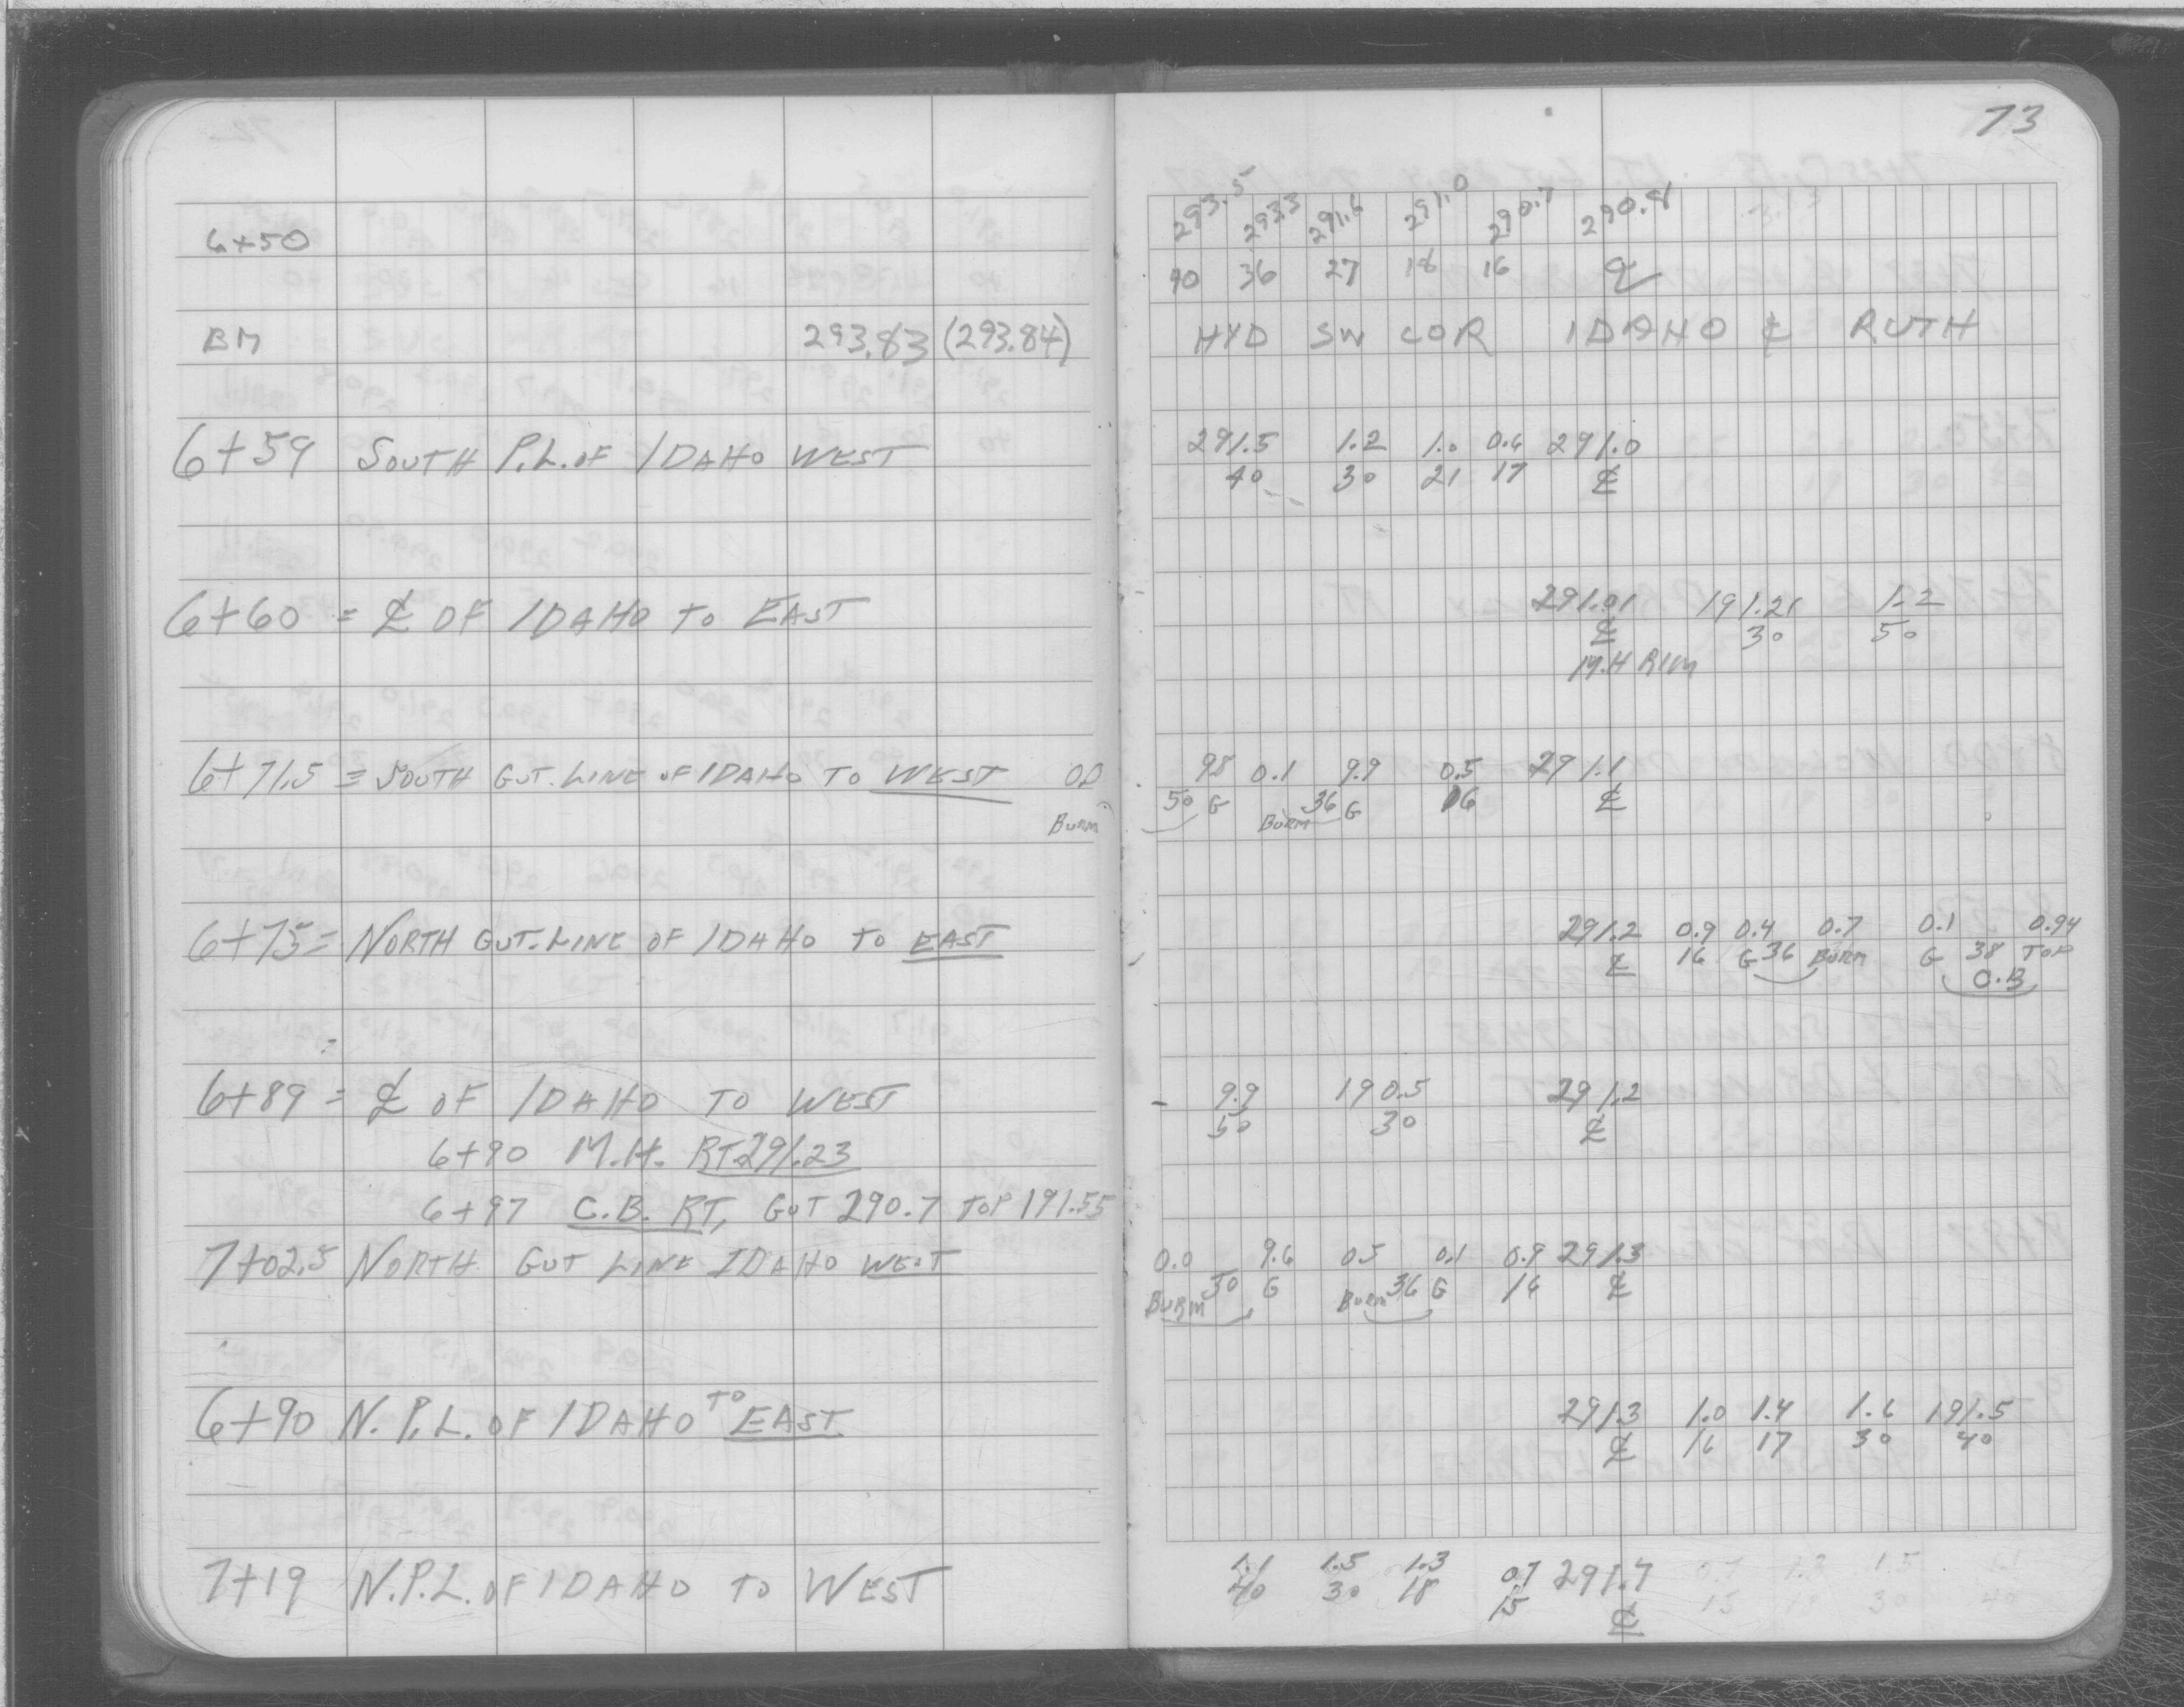 73
6+50
293.5 293.3 291.6 291.0 290.7 290.4
40 36 27 18 16 ℄
BM 293.83 (293.84) HYD SW COR IDAHO & RUTH
6+59 SOUTH P.L. OF IDAHO WEST 291.5 1.2 1.0 0.6 291.0
40 30 21 17 ℄
6+60 = ℄ OF IDAHO TO EAST 291.01 191.21 1.2
℄ 30 50
M.H RIM
6+71.5 = SOUTH GUT. LINE OF IDAHO TO WEST 0.0 9.8 0.1 9.9 0.5 291.1
BURM 50 G BURM 36 G 16 ℄
6+75 = NORTH GUT. LINE OF IDAHO TO EAST 291.2 0.9 0.4 0.7 0.1 0.94
℄ 16 G 36 BURM G 38 TOP
C.B
6+89 = ℄ OF IDAHO TO WEST 9.9 190.5 291.2
50 30 ℄
6+90 M.H. RT. 291.23
6+97 C.B. RT, GUT 290.7 TOP 191.55
7+02.5 NORTH GUT LINE IDAHO WEST 0.0 9.6 0.5 0.1 0.9 291.3
BURM 50 G BURM 36 G 16 ℄
6+90 N.P.L. OF IDAHO TO EAST 291.3 1.0 1.4 1.6 191.5
℄ 16 17 30 40
7+19 N.P.L. OF IDAHO TO WEST 1.1 1.5 1.3 0.7 291.7
40 30 18 15 ℄